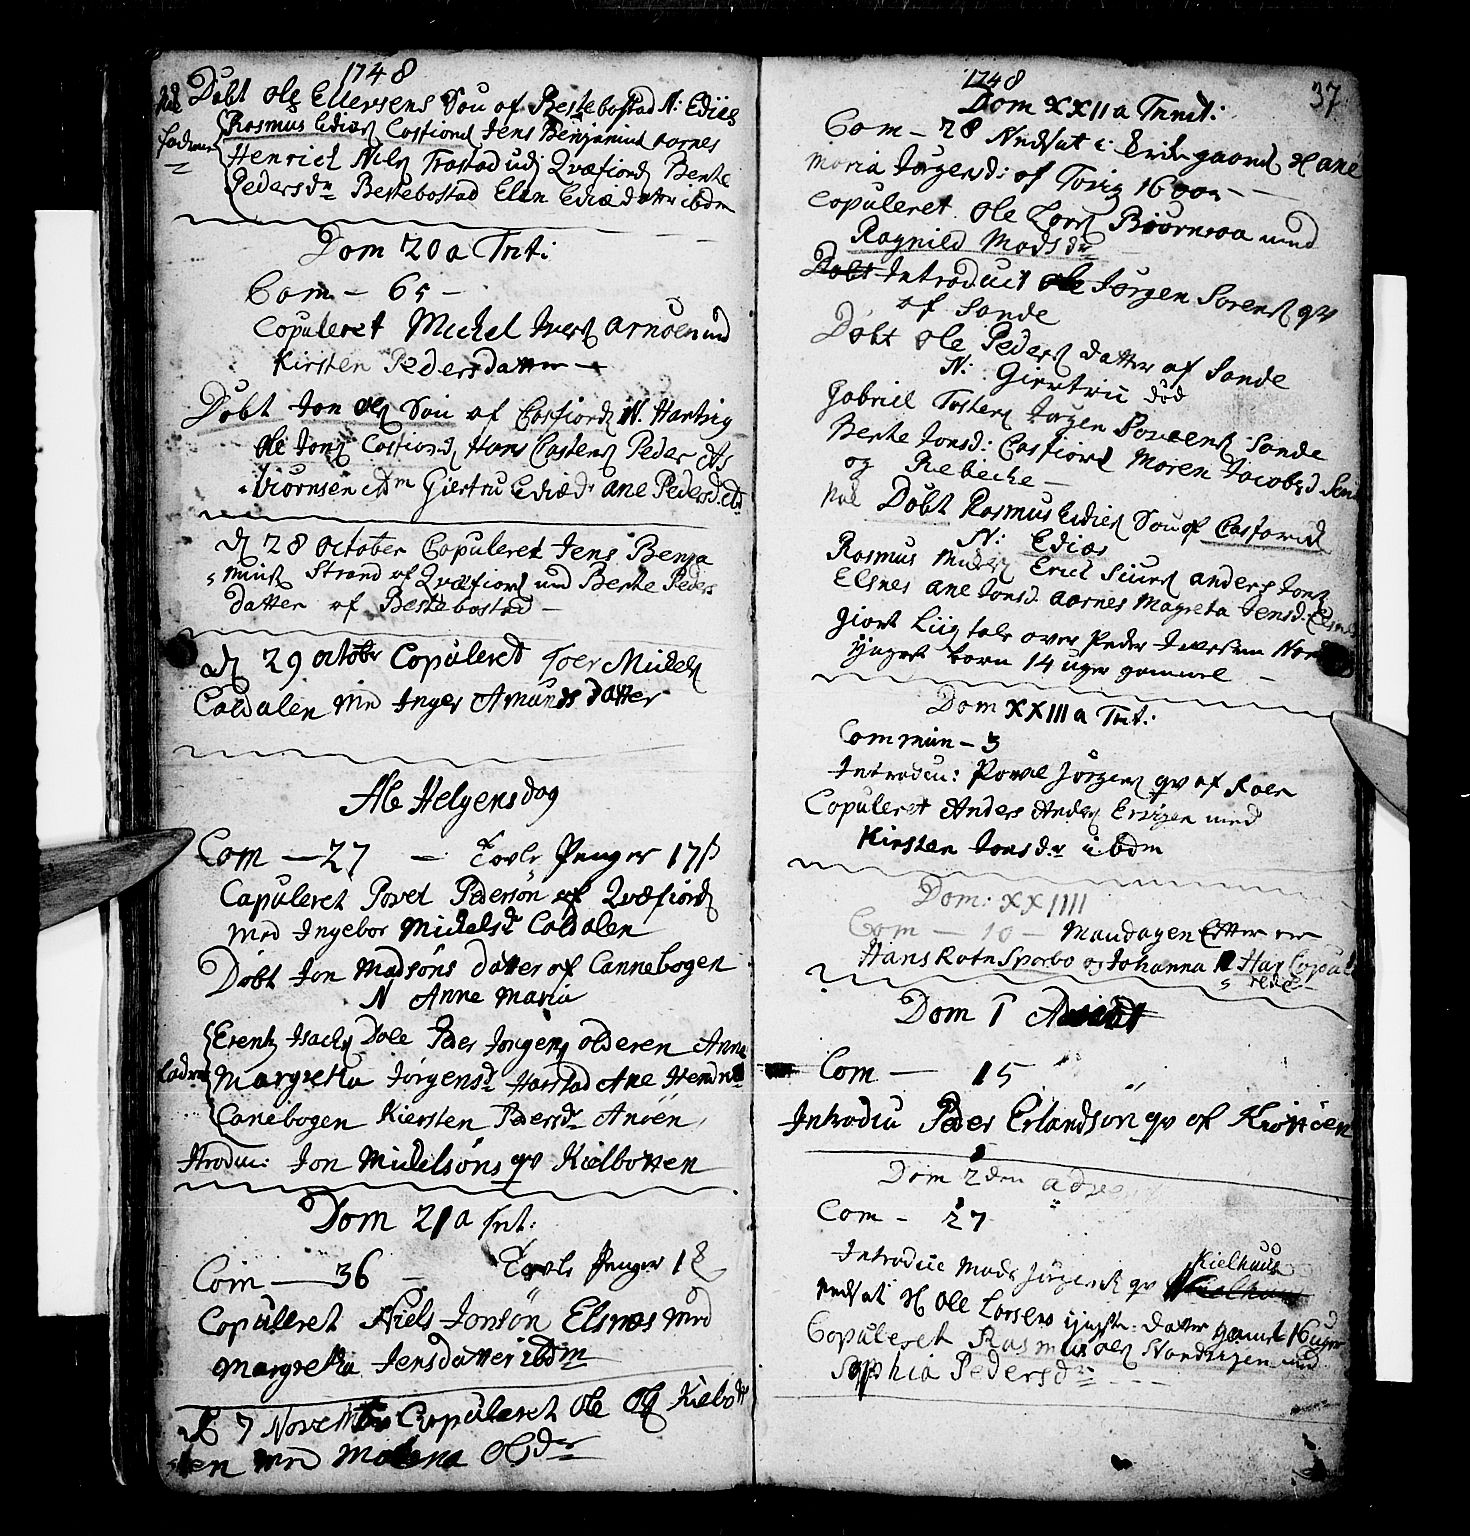 1748
Døbt Ole Ellersens Søn af Bestebostad N: Edies
Rasmus Ediæs Casfiord Jens Benjamins Aarnes
fadrene Henrich Nils Trastad udi Qvæfiord Berte
Peders dr Bestebostad Elen Ediæ datter ibdm
Dom 20 a Trit:
Com - 65 -
Copuleret Michel Ivers Arnöen med
Kirsten Pedersdatter
Døbt Jon Ols Søn af Casfiord N. Hartvig
Ole Jons Casfiord Hans Castens Peder As
biörnsen ibdm Giertru Ediæ dr Ane Pedersd. ibd
D 28 October Copuleret Jens Benja
mins Strand af Qvæfiord med Berte Peders
datter af Bestebostad -
D 29 October Copuleret Joer Mickels
Caldalen med Inger Amunds datter
Ale Helgensdag
Com - 27 - Tavle Penger 17 ß
Copuleret Povel Pedersön af Qvæfiord
med Ingebor Mickels dr Caldalen
Døbt Jon Madsöns datter af Cannebogen
N Anne Maria
Erents Isachs Dale Peder Jörgens Olderen Anna
fadrene Margretha Jörgens dr Harstad Ane Hendr
Canebogen Kiersten Peders dr Anöen
Itroduc: Jon Mickelsöns qv Kielbotten
Dom 21 a Trit:
Com - 36 - Tavle Penger 18
Copuleret Niels Jonsön Elsnes med
Margretha Jensdatter ibdm
D 7 November Copuleret Ole Ols Kielbot
ten med Malena Ols dr
37
1748
Dom XXII a Trinit:
Com - 28 Nedsat i Erichgaard H Ane
Maria Jörgensd: af Tovig 16 aar -
Copuleret Ole Lars Biörnraa med
Ragnild Mads dr
Døbt Introducit Ole Jörgen Sörens qv
af Sande
Døbt Ole Peders datter af Sande
N: Giertrü död
Gabriel Tosters Jörgen Sörens Sande
Berte Jonsd: Casfiord Maren Jacobsd Sand
og Rebecke -
Døbt Rasmus Ediæs Søn af Casfiord
N: Edias
Rasmus Mickels Erich Siurs Anders Jons
Elsnes Ane Jonsd. Aarnes Magreta Jensd. Elsnes
giort Liigtale over Peder Iversen
yngst barn 14 uger gammel -
Dom XXIII a Trit:
Commun - 3
Introduc: Povel Jörgens qv af Roen
Copuleret Anders Anders Ervigen med
Kirsten Jons dr ibdm
Dom: XXIIII
Com - 10 - Mandagen Efter er
Hans Ratn Sparbo og Johanna Har Copule
rede -
Dom 1 Advent
Com - 15
Introdu Peder Erlandsön qv af Kiötöen
Dom 2den Advent
Com - 27
Introduc Mads Jörgens qv Kielhuus
nedsat H Ole Larsens yngste: datter gamel 16 uger
Copuleret Rasmus Ols Sandvigen med
Sophia Peders dr -